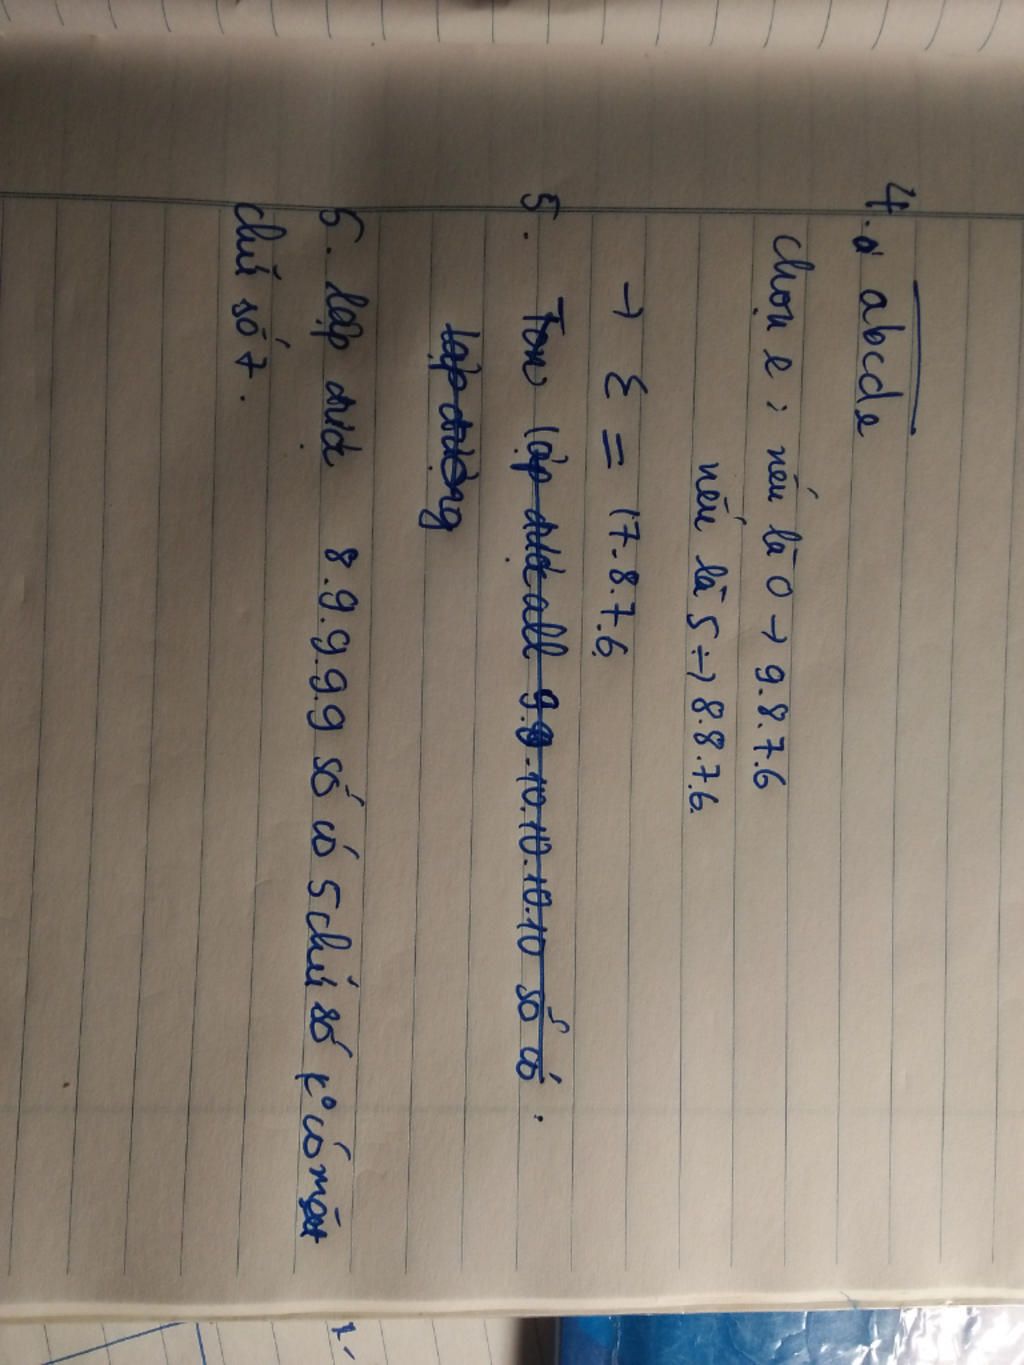 4. abcde
chọn e: nếu là 0 → 9.8.7.6
nếu là 5 → 8.8.7.6.
→ Σ = 17.8.7.6
5. lập được all 9.9.10.10.10.10 số có.
lập được
5. lập được 8.9.9.9.9 số có 5 chữ số k° có mặt
chữ số 7.